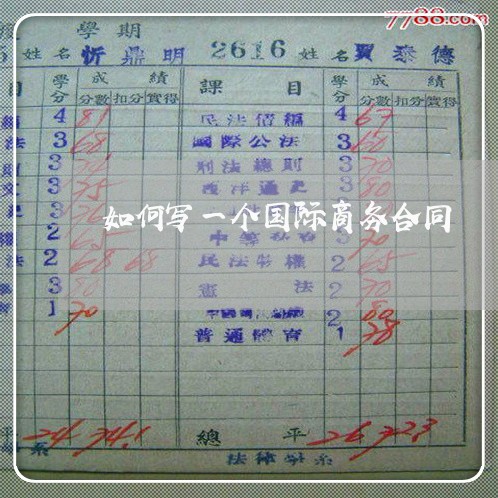 7788.com
學期
姓名 忻鼎明 2616 姓名 賈泰德
目 學分 成績 課目 學分 成績
分數 扣分 實得 分數 扣分 實得
4 81 民法債編 4 67
法 3 68 國際公法 3 60
3 刑法總則 3 70
3 75 西洋通史 3 80
如何写一个国际商务合同
2 3 70
法 2 68 68 民法物權 2 65
3 80 憲法 2 70
1 70 2 80
普通體育 1 78
平 24 74.1 總平 26 72.3
系 法律學系